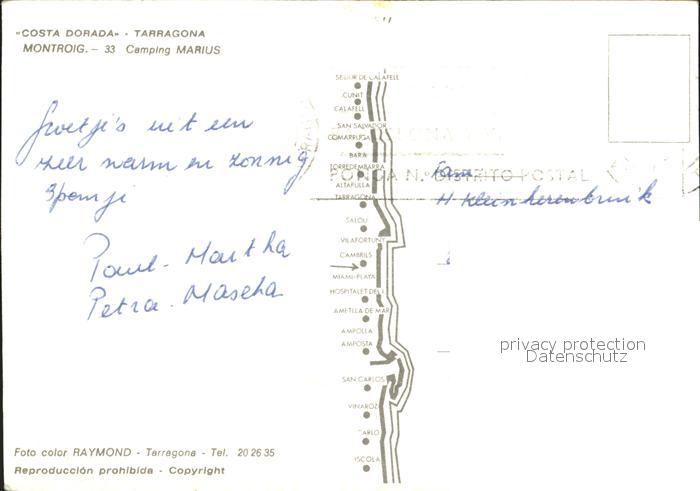 «COSTA DORADA» - TARRAGONA
MONTROIG. - 33 Camping MARIUS
Groetjes uit een
zeer warm en zonnig
Spanje
Paul - Martha
Petra - Mascha
SEGUR DE CALAFELL
CUNIT
CALAFELL
SAN SALVADOR
COMARRUGA
BARA
TORREDEMBARRA
ALTAFULLA
TARRAGONA
SALOU
VILAFORTUNY
CAMBRILS
MIAMI-PLAYA
HOSPITALET DEL I.
AMETLLA DE MAR
AMPOLLA
AMPOSTA
SAN CARLOS
VINAROZ
CARLO
ISCOLA
PONGA N.º DISTRITO POSTAL
Fam.
H Kleinherenbrink
privacy protection
Datenschutz
Foto color RAYMOND - Tarragona - Tel. 20 26 35
Reproducción prohibida - Copyright